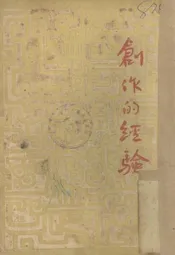 創作的經驗